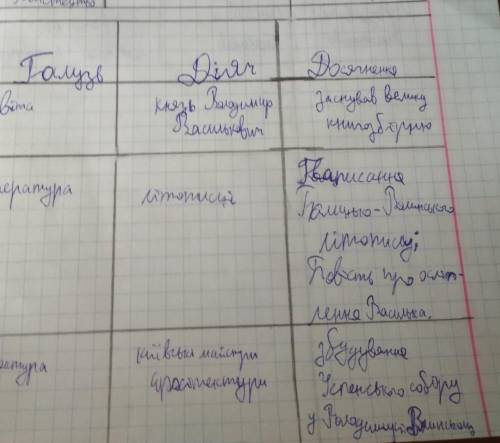 Галузь Діяч Досягнення
віта князь Володимир заснував велику
Василькович книгозбірню
ература літописці Написання
Галицько-Волинського
літопису;
Повість про осліп-
лення Василька.
ктура київські майстри збудування
архітектури Успенського собору
у Володимирі Волинському